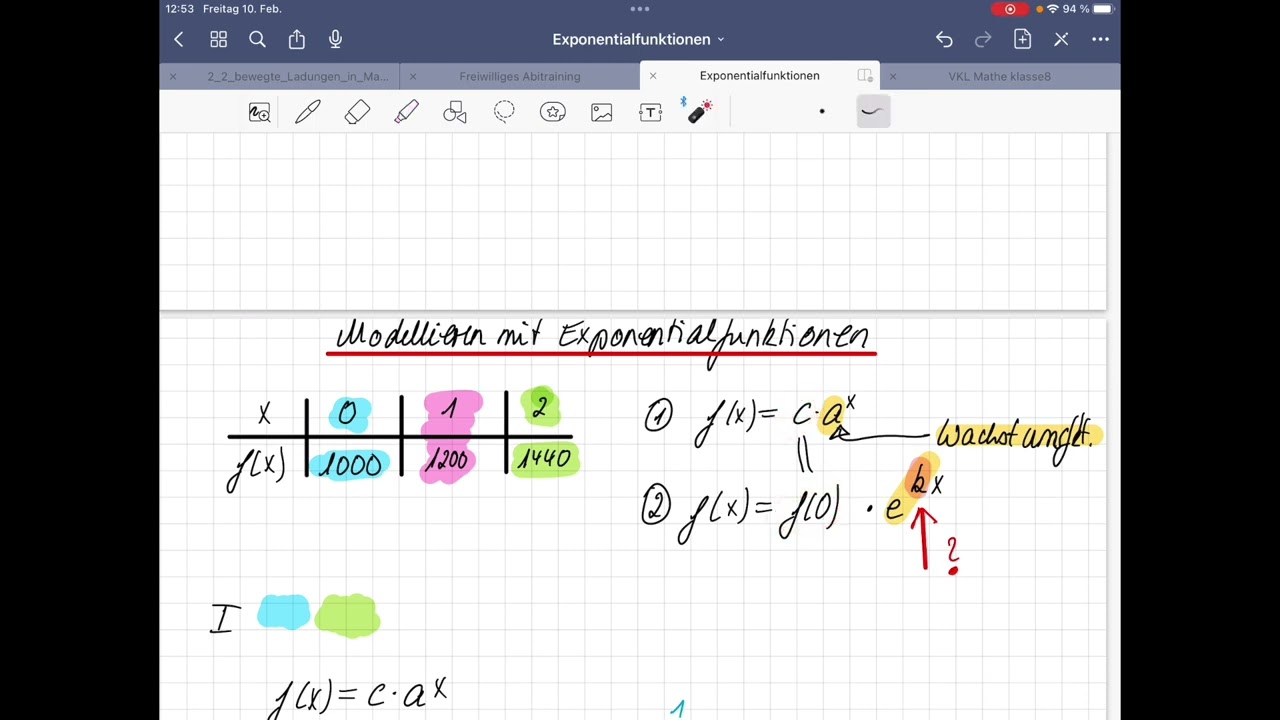 12:53 Freitag 10. Feb.
94 %
Exponentialfunktionen
2_2_bewegte_Ladungen_in_Ma...
Freiwilliges Abitraining
Exponentialfunktionen
VKL Mathe klasse8
Modellieren mit Exponentialfunktionen
x 0 1 2
f(x) 1000 1200 1440
① f(x) = c·a^x
② f(x) = f(0) · e^kx
?
I
f(x) = c·a^x
1